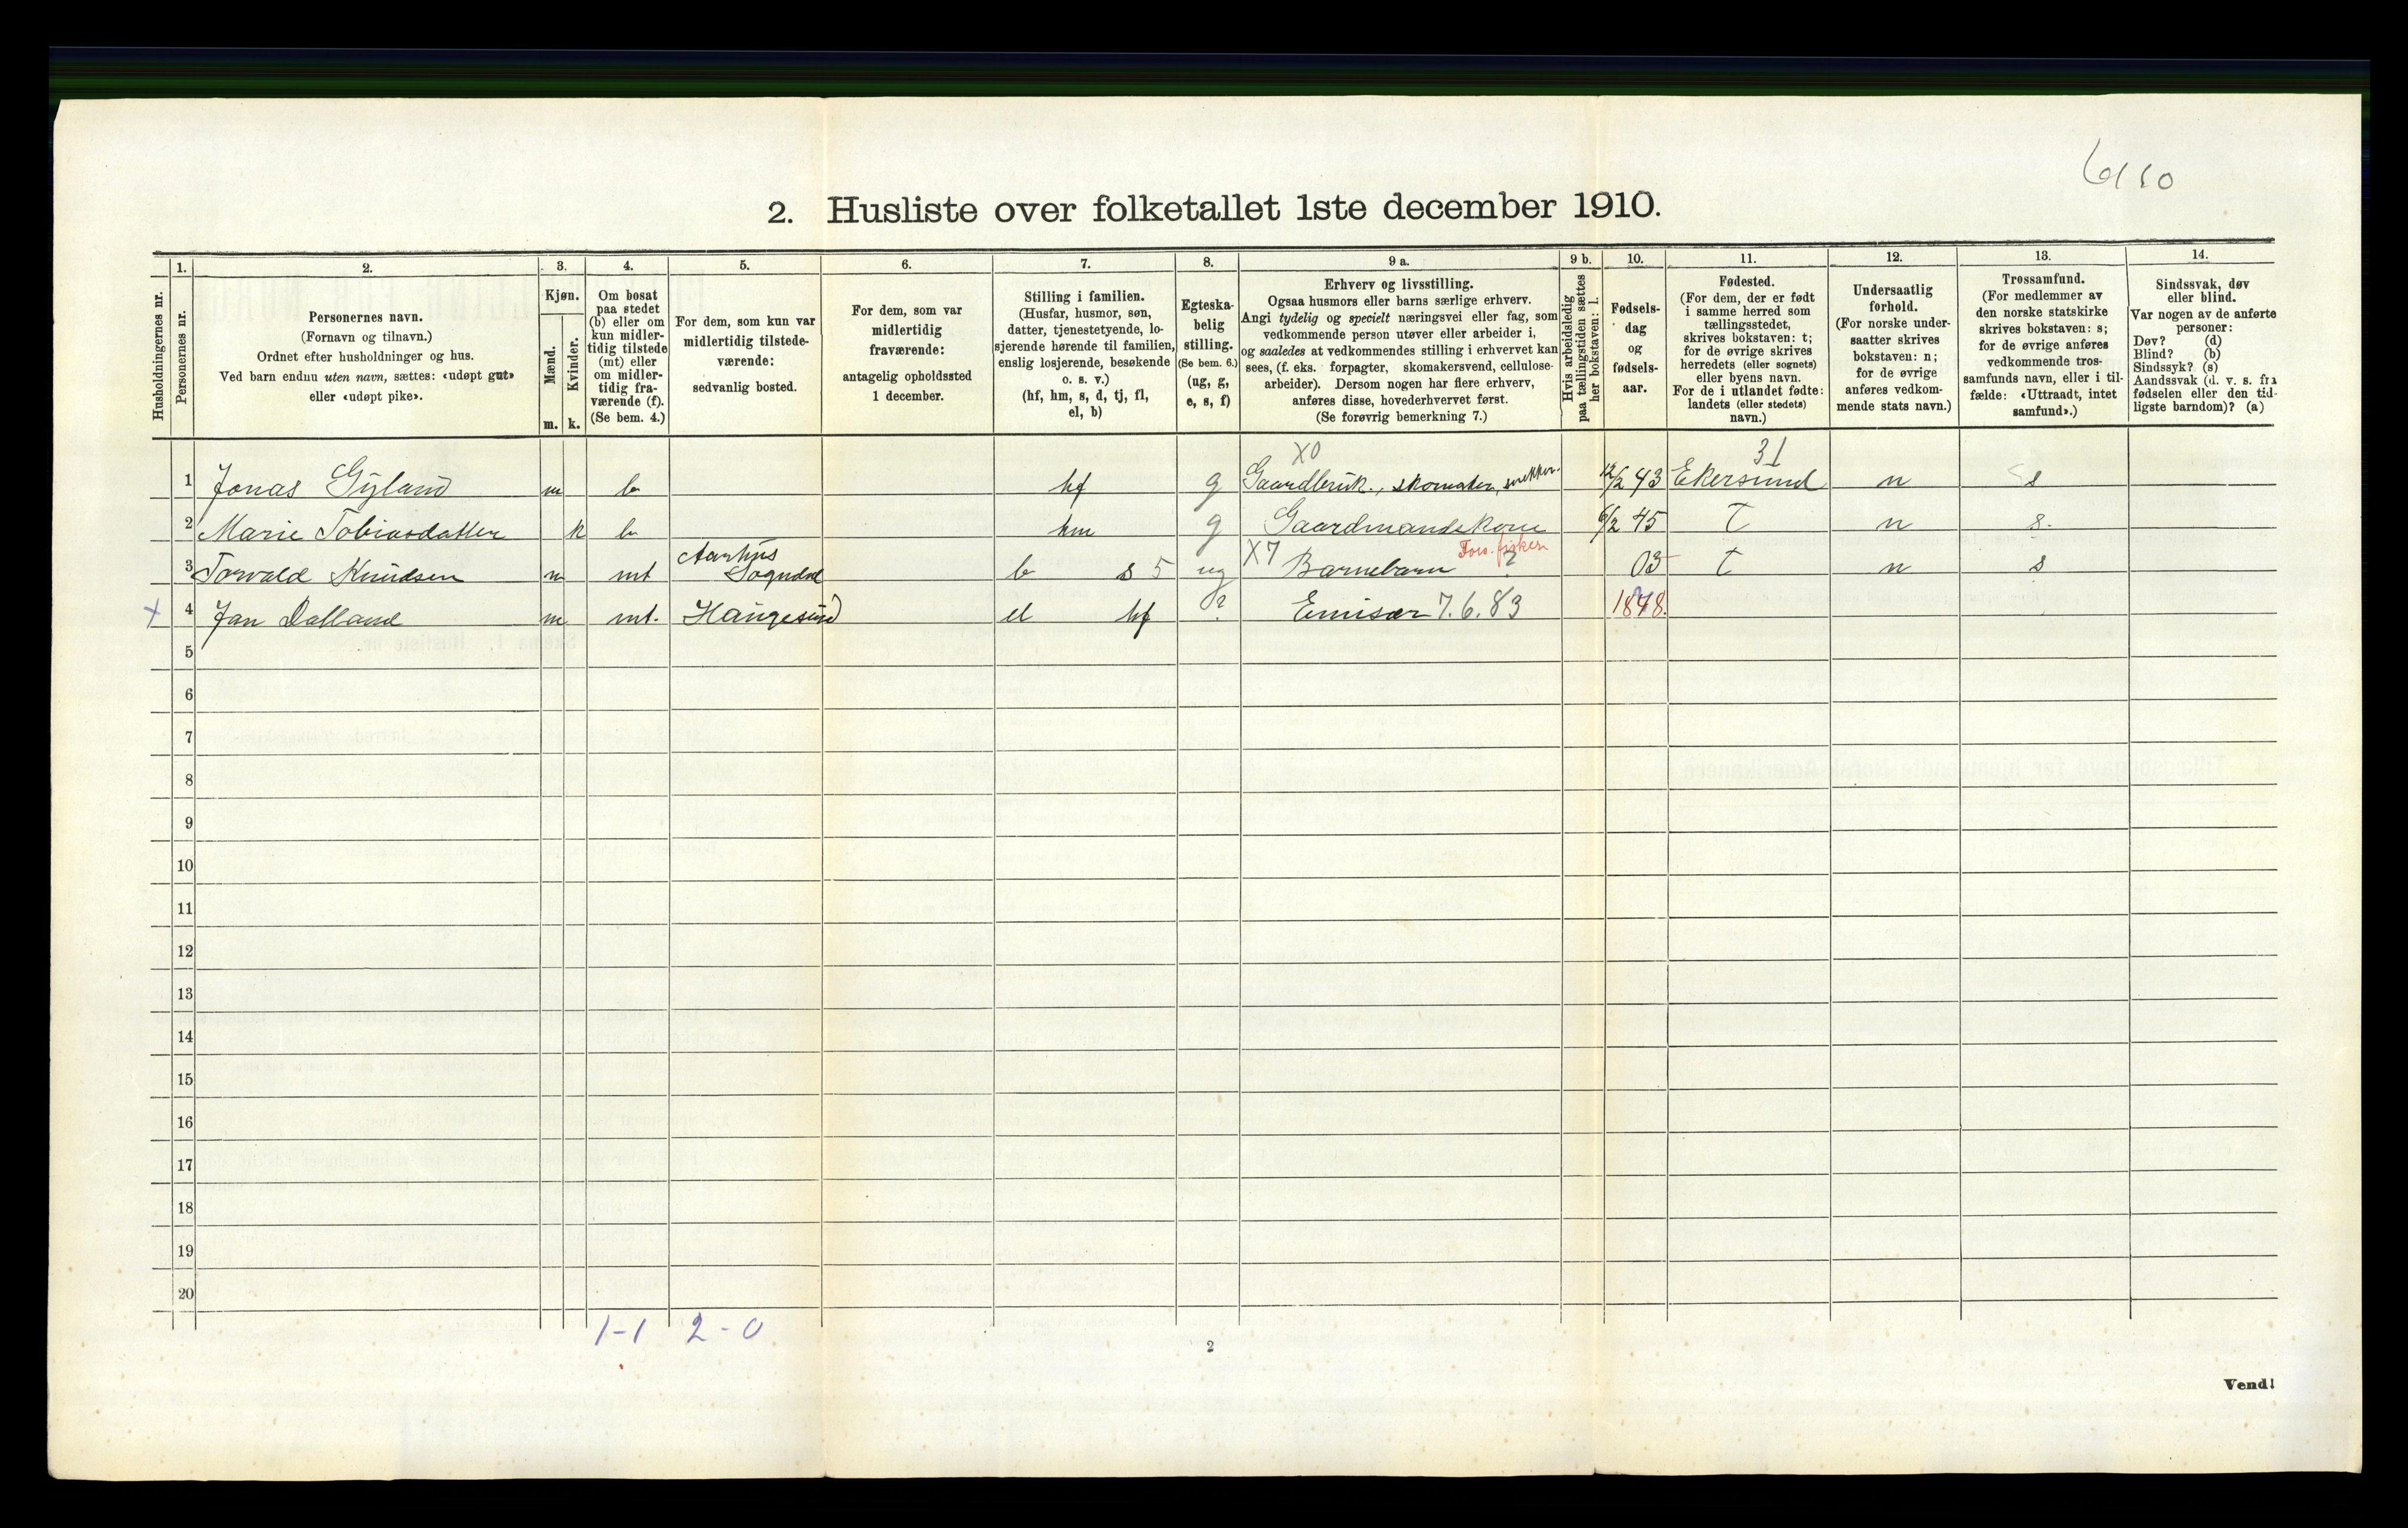 2. Husliste over folketallet 1ste december 1910.
Husholdningernes nr.
1. Personernes nr.
2. Personernes navn.
(Fornavn og tilnavn.)
Ordnet efter husholdninger og hus.
Ved barn endnu uten navn, sættes: «udøpt gut»
eller «udøpt pike».
3. Kjøn.
Mænd. Kvinder.
m. k.
4. Om bosat
paa stedet
(b) eller om
kun midler-
tidig tilstede
(mt) eller
om midler-
tidig fra-
værende (f).
(Se bem. 4.)
5. For dem, som kun var
midlertidig tilstede-
værende:
sedvanlig bosted.
6. For dem, som var
midlertidig
fraværende:
antagelig opholdssted
1 december.
7. Stilling i familien.
(Husfar, husmor, søn,
datter, tjenestetyende, lo-
sjerende hørende til familien,
enslig losjerende, besøkende
o. s. v.)
(hf, hm, s, d, tj, fl,
el, b)
8. Egteska-
belig
stilling.
(Se bem. 6.)
(ug, g,
e, s, f)
9 a. Erhverv og livsstilling.
Ogsaa husmors eller barns særlige erhverv.
Angi tydelig og specielt næringsvei eller fag, som
vedkommende person utøver eller arbeider i,
og saaledes at vedkommendes stilling i erhvervet kan
sees, (f. eks. forpagter, skomakersvend, cellulose-
arbeider). Dersom nogen har flere erhverv,
anføres disse, hovederhvervet først.
(Se forøvrig bemerkning 7.)
9 b. Hvis arbeidsledig
paa tællingstiden sættes
her bokstaven: l.
10. Fødsels-
dag
og
fødsels-
aar.
11. Fødested.
(For dem, der er født
i samme herred som
tællingsstedet,
skrives bokstaven: t;
for de øvrige skrives
herredets (eller sognets)
eller byens navn.
For de i utlandet fødte:
landets (eller stedets)
navn.)
12. Undersaatlig
forhold.
(For norske under-
saatter skrives
bokstaven: n;
for de øvrige
anføres vedkom-
mende stats navn.)
13. Trossamfund.
(For medlemmer av
den norske statskirke
skrives bokstaven: s;
for de øvrige anføres
vedkommende tros-
samfunds navn, eller i til-
fælde: «Uttraadt, intet
samfund».)
14. Sindssvak, døv
eller blind.
Var nogen av de anførte
personer:
Døv? (d)
Blind? (b)
Sindssyk? (s)
Aandssvak (d. v. s. fra
fødselen eller den tid-
ligste barndom)? (a)
X0 31
1 Jonas Gyland m b hf g Gaardbruk., skomaker, snekker. 12/2 43 Ekersund n s
2 Marie Tobiasdatter k b hm g Gaardmandskone 6/2 45 t n s.
Aarhus X7 Fors. fisker
3 Torvald Knudsen m mt Sogndal b s 5 ug Barnebarn ? 03 t n s
X 4 Jan Dalland m mt. Haugesund el hf ? Emisær 7.6.83 1878.
5
6
7
8
9
10
11
12
13
14
15
16
17
18
19
20
1-1 2-0
2
Vend!